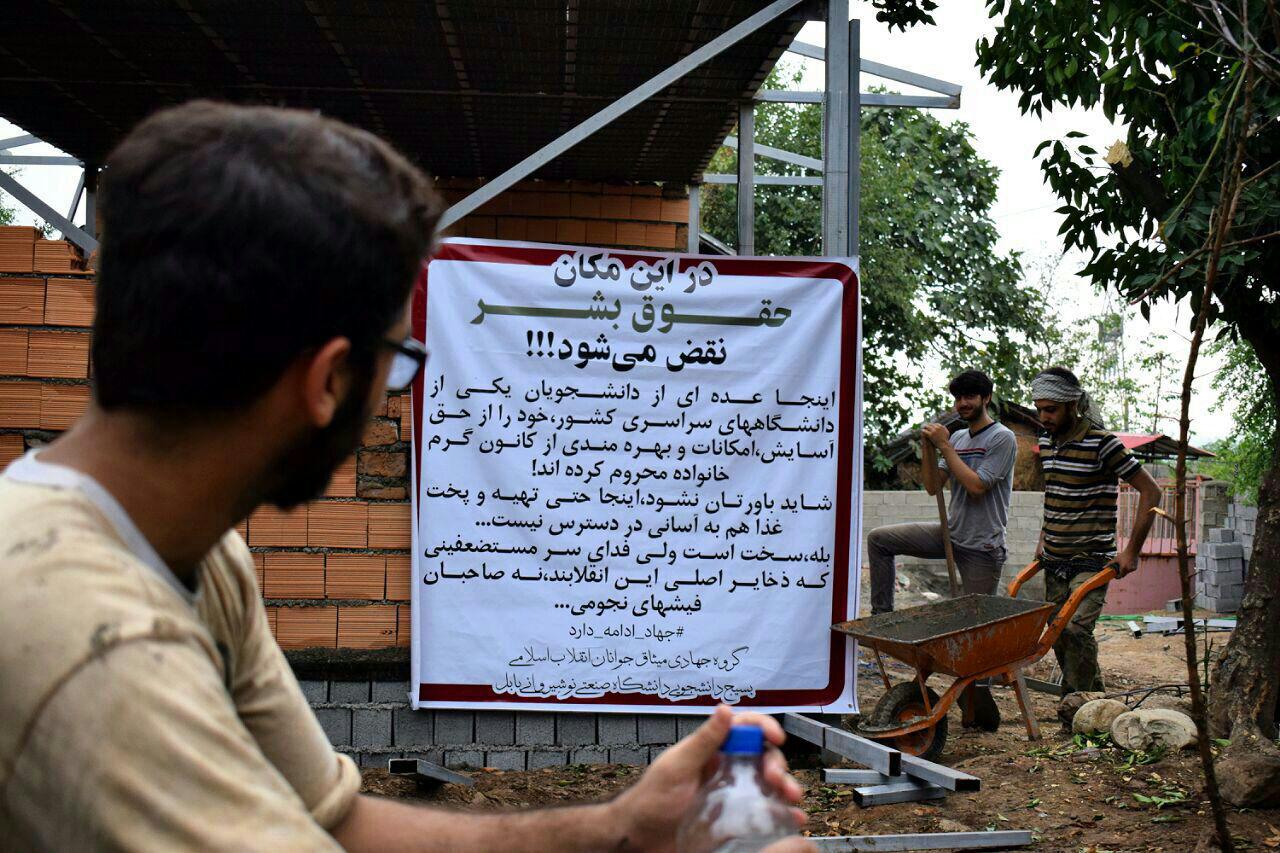 در این مکان
حقوق بشر
نقض می‌شود!!!
اینجا عده ای از دانشجویان یکی از
دانشگاههای سراسری کشور،خود را از حق
آسایش،امکانات و بهره مندی از کانون گرم
خانواده محروم کرده اند!
شاید باورتان نشود،اینجا حتی تهیه و پخت
غذا هم به آسانی در دسترس نیست...
بله،سخت است ولی فدای سر مستضعفینی
که ذخایر اصلی این انقلابند،نه صاحبان
فیشهای نجومی...
#جهاد_ادامه_دارد
گروه جهادی میثاق جوانان انقلاب اسلامی
بسیج دانشجویی دانشگاه صنعتی نوشیروانی بابل